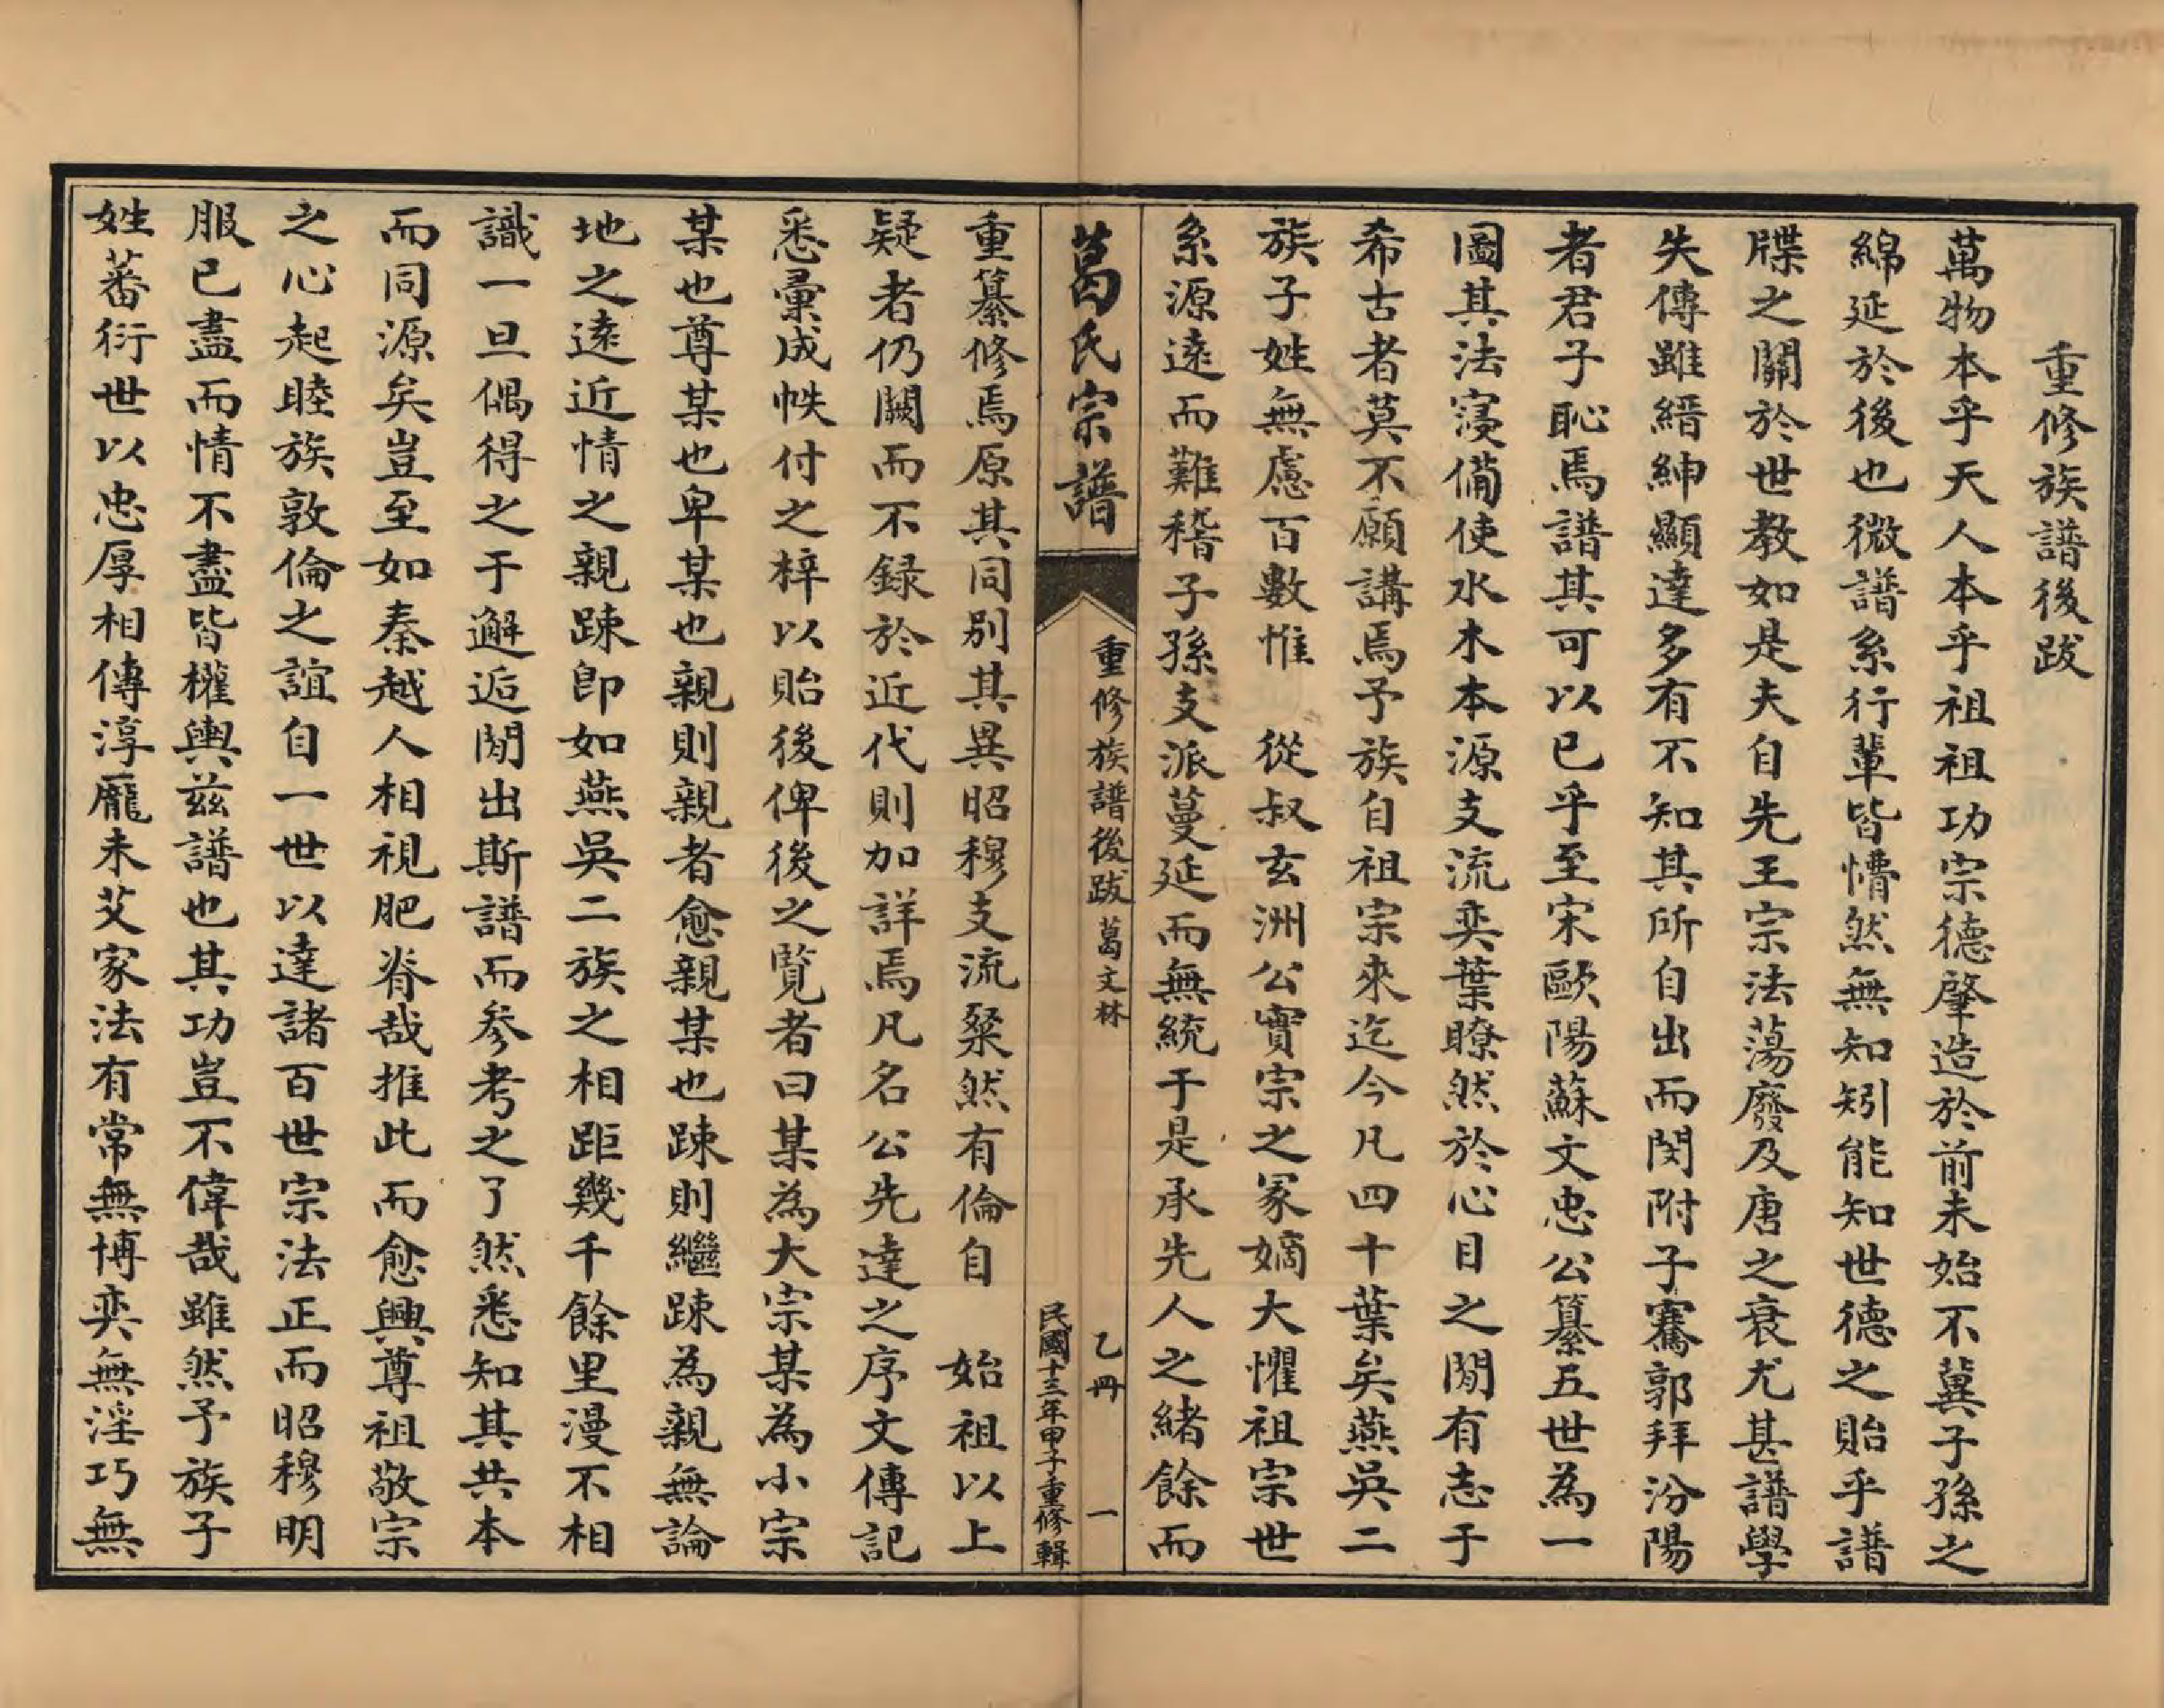 重修族譜後跋
萬物本乎天人本乎祖祖功宗德肇造於前未始不冀子孫之
綿延於後也微譜系行輩皆懵然無知矧能知世德之貽乎譜
牒之關於世教如是夫自先王宗法蕩廢及唐之衰尤甚譜學
失傳雖縉紳顯達多有不知其所自出而閔附子騫郭拜汾陽
者君子恥焉譜其可以已乎至宋歐陽蘇文忠公纂五世為一
圖其法寖備使水木本源支流奕葉瞭然於心目之閒有志于
希古者莫不願講焉予族自祖宗來迄今凡四十葉矣燕吳二
族子姓無慮百數惟　從叔玄洲公實宗之冢嫡大懼祖宗世
系源遠而難稽子孫支派蔓延而無統于是承先人之緒餘而
葛氏宗譜
重修族譜後跋 葛文林
乙冊 一
民國十三年甲子重修輯
重纂修焉原其同別其異昭穆支流粲然有倫自　始祖以上
疑者仍闕而不録於近代則加詳焉凡名公先達之序文傳記
悉彙成帙付之梓以貽後俾後之覽者曰某為大宗某為小宗
某也尊某也卑某也親則親者愈親某也踈則繼踈為親無論
地之遠近情之親踈即如燕吳二族之相距幾千餘里漫不相
識一旦偶得之于邂逅閒出斯譜而參考之了然悉知其共本
而同源矣豈至如秦越人相視肥脊哉推此而愈興尊祖敬宗
之心起睦族敦倫之誼自一世以達諸百世宗法正而昭穆明
服已盡而情不盡皆權輿茲譜也其功豈不偉哉雖然予族子
姓蕃衍世以忠厚相傳淳龐未艾家法有常無博奕無淫巧無